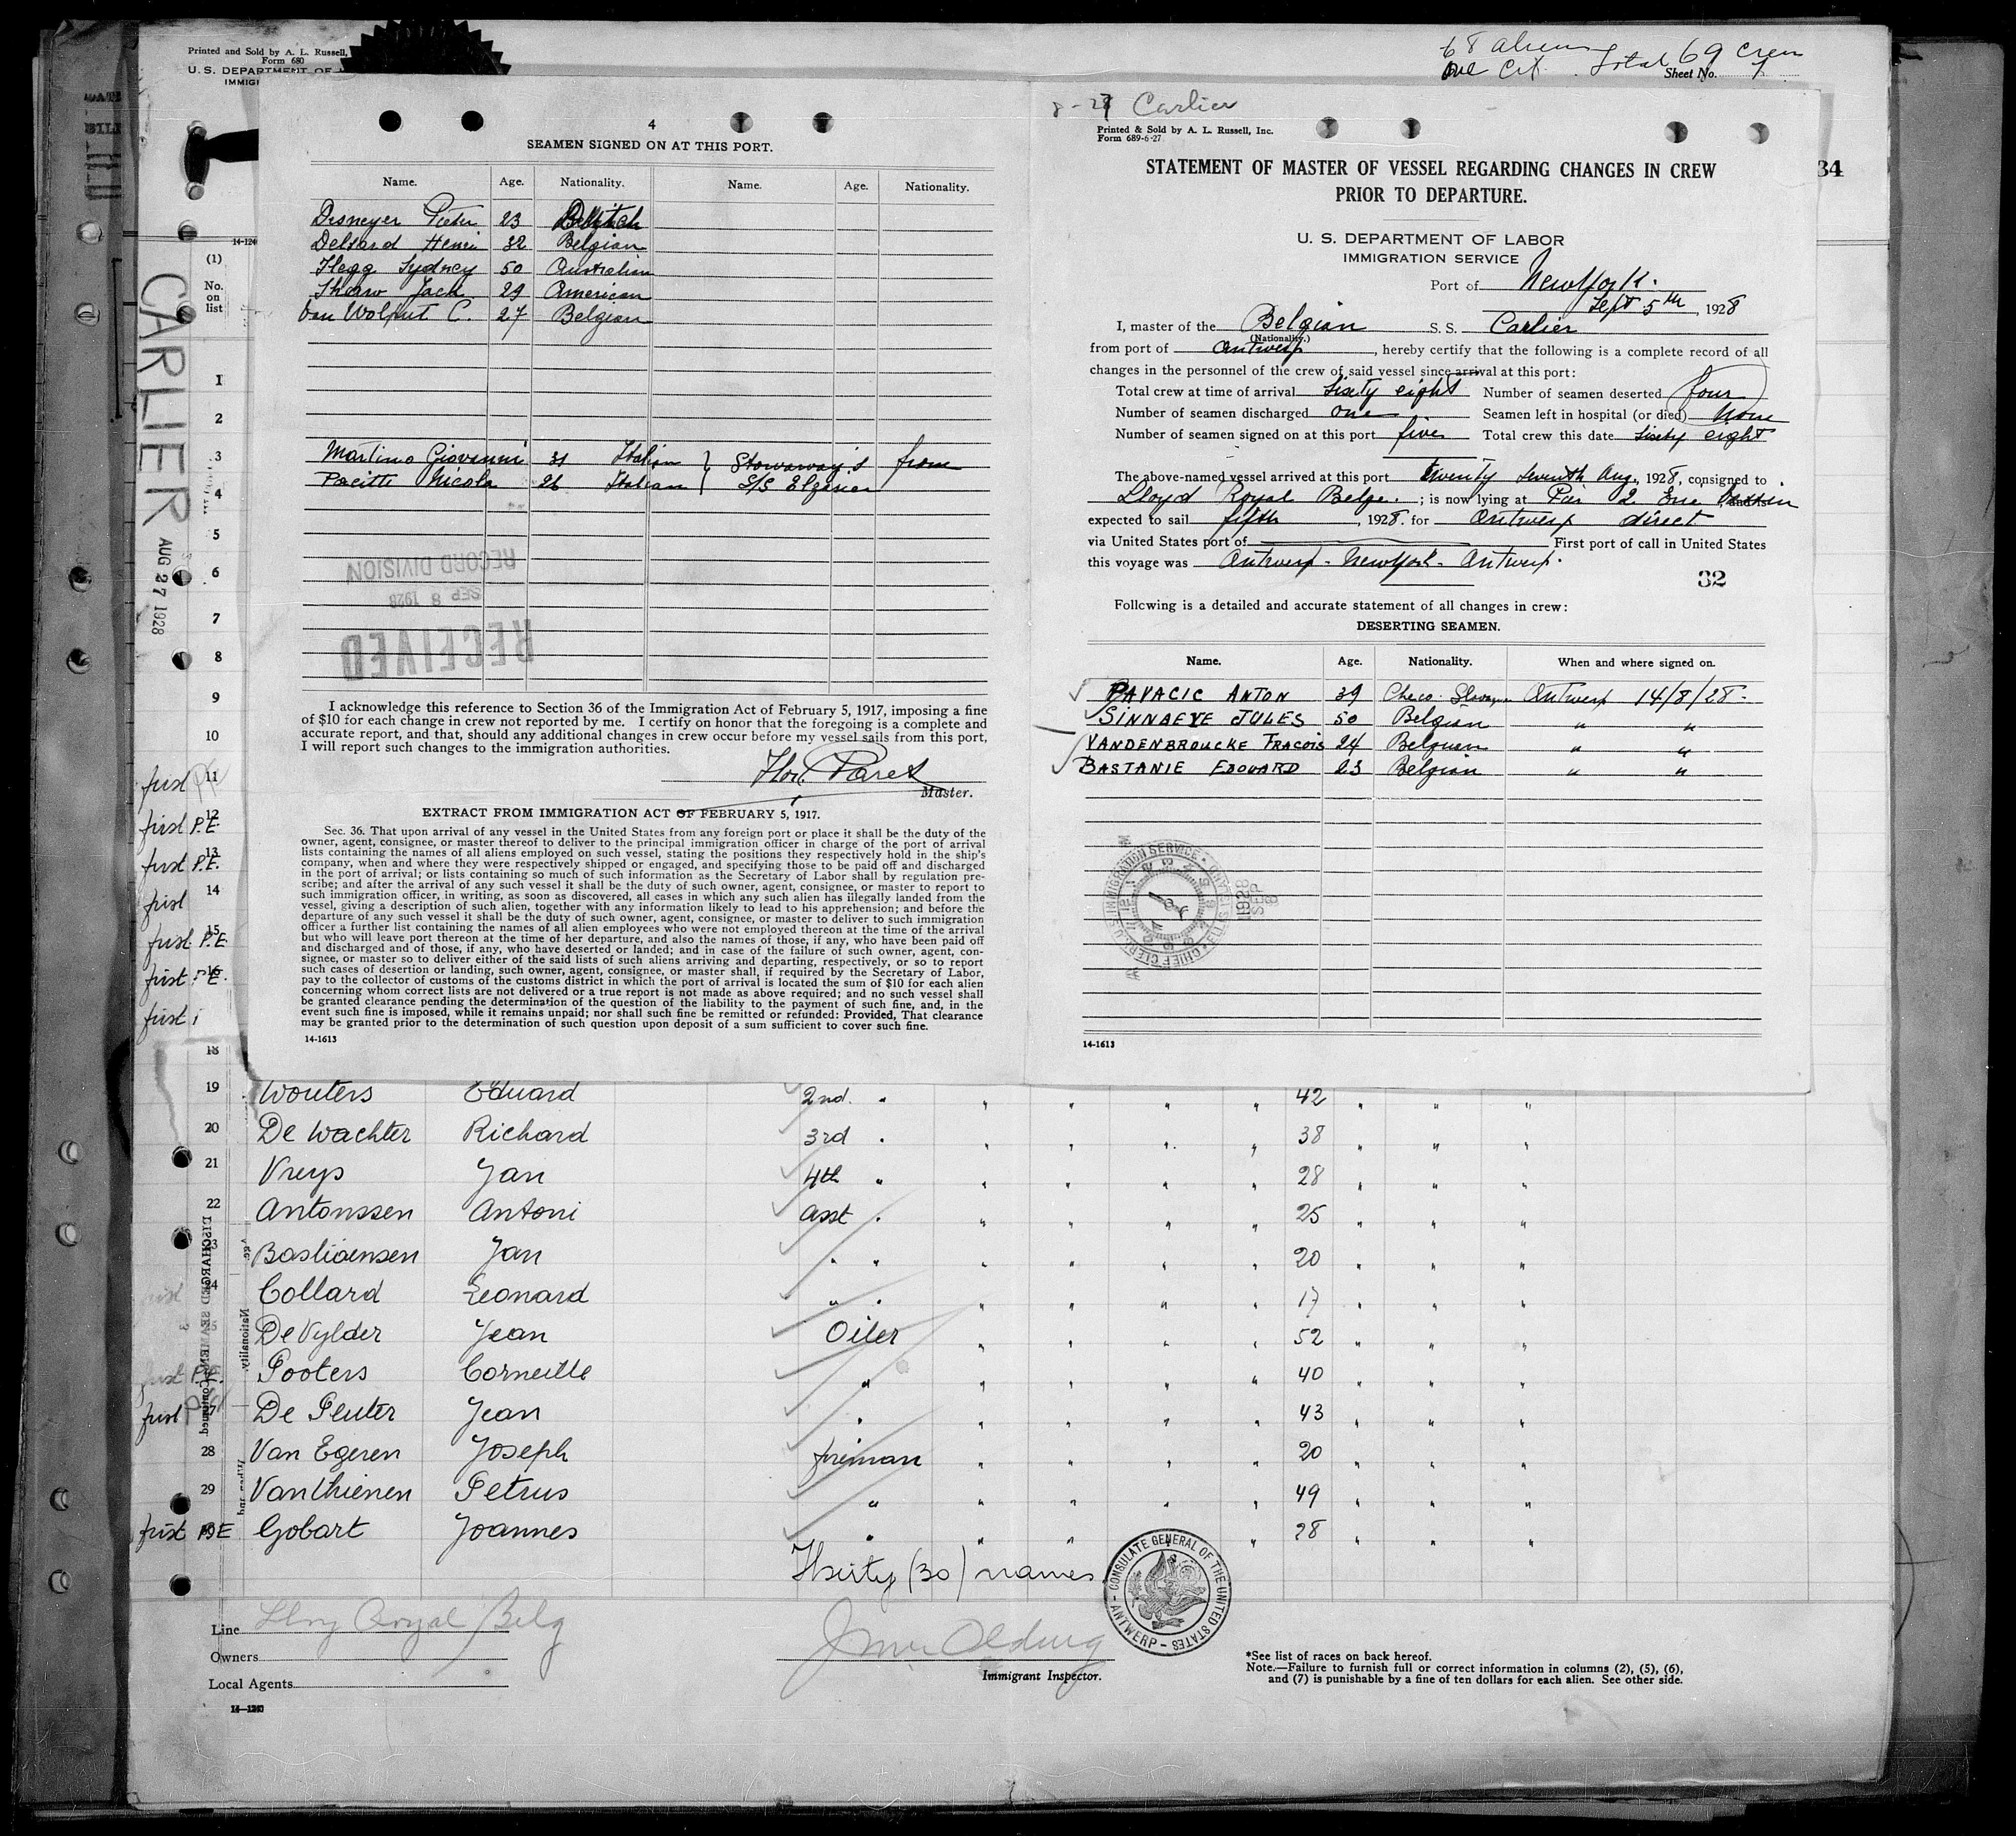 Printed and Sold by A. L. Russell,
Form 680
U. S. DEPARTMENT OF
IMMIGR
68 aliens
one Cit. Total 69 crew
Sheet No. 1
34
CARLIER
AUG 27 1928
14-124
(1)
No.
on
list
1
2
3
4
5
6
7
8
9
10
first 11
first P.E. 12
first P.E. 13
first 14
first P.E. 15
first P.E. 16
first
18
4
SEAMEN SIGNED ON AT THIS PORT.
Name. Age. Nationality. Name. Age. Nationality.
Desmeyer Pieter 23 Dutch
Delsard Henri 32 Belgian
Flegg Sydney 50 Australian
Shaw Jack 29 American
Van Wolput C. 27 Belgian
Martino Giovanni 31 Italian } Stowaway's from
Pacitti Nicola 26 Italian } S/S Elzasier
RECORD DIVISION
SEP 8 1928
RECEIVED
I acknowledge this reference to Section 36 of the Immigration Act of February 5, 1917, imposing a fine
of $10 for each change in crew not reported by me. I certify on honor that the foregoing is a complete and
accurate report, and that, should any additional changes in crew occur before my vessel sails from this port,
I will report such changes to the immigration authorities.
Flor. Paret
Master.
EXTRACT FROM IMMIGRATION ACT OF FEBRUARY 5, 1917.
Sec. 36. That upon arrival of any vessel in the United States from any foreign port or place it shall be the duty of the
owner, agent, consignee, or master thereof to deliver to the principal immigration officer in charge of the port of arrival
lists containing the names of all aliens employed on such vessel, stating the positions they respectively hold in the ship's
company, when and where they were respectively shipped or engaged, and specifying those to be paid off and discharged
in the port of arrival; or lists containing so much of such information as the Secretary of Labor shall by regulation pre-
scribe; and after the arrival of any such vessel it shall be the duty of such owner, agent, consignee, or master to report to
such immigration officer, in writing, as soon as discovered, all cases in which any such alien has illegally landed from the
vessel, giving a description of such alien, together with any information likely to lead to his apprehension; and before the
departure of any such vessel it shall be the duty of such owner, agent, consignee, or master to deliver to such immigration
officer a further list containing the names of all alien employees who were not employed thereon at the time of the arrival
but who will leave port thereon at the time of her departure, and also the names of those, if any, who have been paid off
and discharged and of those, if any, who have deserted or landed; and in case of the failure of such owner, agent, con-
signee, or master so to deliver either of the said lists of such aliens arriving and departing, respectively, or so to report
such cases of desertion or landing, such owner, agent, consignee, or master shall, if required by the Secretary of Labor,
pay to the collector of customs of the customs district in which the port of arrival is located the sum of $10 for each alien
concerning whom correct lists are not delivered or a true report is not made as above required; and no such vessel shall
be granted clearance pending the determination of the question of the liability to the payment of such fine, and, in the
event such fine is imposed, while it remains unpaid; nor shall such fine be remitted or refunded: Provided, That clearance
may be granted prior to the determination of such question upon deposit of a sum sufficient to cover such fine.
14-1613
8-27 Carlier
Printed & Sold by A. L. Russell, Inc.
Form 689-6-27
STATEMENT OF MASTER OF VESSEL REGARDING CHANGES IN CREW
PRIOR TO DEPARTURE.
U. S. DEPARTMENT OF LABOR
IMMIGRATION SERVICE
Port of New York.
Sept 5th, 1928
I, master of the Belgian S. S. Carlier
(Nationality.)
from port of Antwerp, hereby certify that the following is a complete record of all
changes in the personnel of the crew of said vessel since arrival at this port:
Total crew at time of arrival Sixty eight Number of seamen deserted four
Number of seamen discharged one Seamen left in hospital (or died) None
Number of seamen signed on at this port five Total crew this date sixty eight
The above-named vessel arrived at this port twenty seventh Aug., 1928, consigned to
Lloyd Royal Belge.; is now lying at Pier 2 Erie Bassin, and is
expected to sail fifth, 1928. for Antwerp direct
via United States port of First port of call in United States
this voyage was Antwerp - New York - Antwerp.
32
Following is a detailed and accurate statement of all changes in crew:
DESERTING SEAMEN.
Name. Age. Nationality. When and where signed on.
PAVACIC ANTON 39 Checo. Slovaquie Antwerp 14/8/28-
SINNAEVE JULES 50 Belgian " "
VANDENBROUCKE FRACOIS 24 Belguen " "
BASTANIE EDOUARD 23 Belgian " "
CHIEF CLERK U.S. IMMIGRATION SERVICE ELLIS ISLAND
1928 SEP 8
14-1613
19 Wouters Eduard 2nd. " " " " " 42 " " "
20 De Wachter Richard 3rd " " " " " 38 " " "
21 Vreys Jan 4th " " " " " 28 " " "
22 Antonssen Antoni asst " " " " " 25 " " "
23 Bastiaensen Jan " " " " " " 20 " " "
24 Collard Leonard " " " " " " 17 " " "
25 De Vylder Jean Oiler " " " " 52 " " "
first P.E. Pooters Corneille " " " " " 40 " " "
first 27 De Peuter Jean " " " " " 43 " " "
28 Van Egeren Joseph fireman " " " " 20 " " "
29 Vanthienen Petrus " " " " " 49 " " "
first P.E. Gobart Joannes " " " " 28 " " "
Thirty (30) names
DISCHARGED SEAMEN—Continued.
Nationality.
CONSULATE GENERAL OF THE UNITED STATES - ANTWERP -
Line Lloy Royal Belg
Owners
Local Agents
Immigrant Inspector.
*See list of races on back hereof.
Note.—Failure to furnish full or correct information in columns (2), (5), (6),
and (7) is punishable by a fine of ten dollars for each alien. See other side.
14-1240